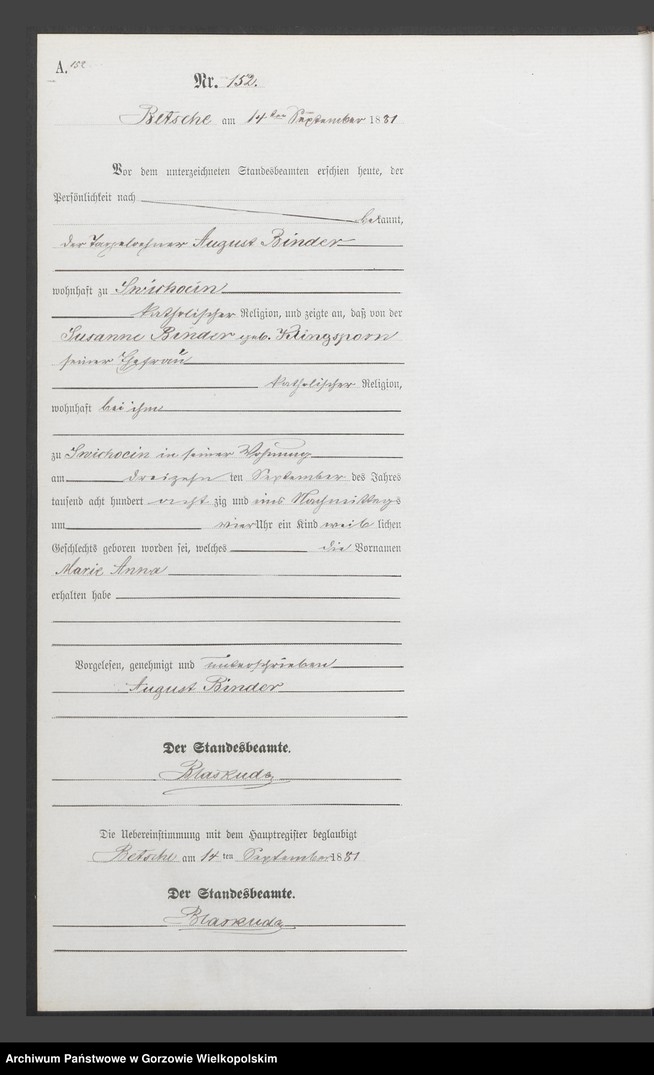 A. 152
Nr. 152.
Betsche am 14ten September 1881
Vor dem unterzeichneten Standesbeamten erschien heute, der
Persönlichkeit nach
bekannt,
der August Binder
wohnhaft zu Swichocin
katholischer Religion, und zeigte an, daß von der
Susanne Binder geb. Klingsporn
seiner Ehefrau
katholischer Religion,
wohnhaft bei ihm
zu Swichocin in seiner Wohnung
am dreizehn ten September des Jahres
tausend acht hundert acht zig und eins Nachmittags
um vier Uhr ein Kind weib lichen
Geschlechts geboren worden sei, welches die Vornamen
Marie Anna
erhalten habe
Vorgelesen, genehmigt und unterschrieben
August Binder
Der Standesbeamte.
Blaskuda
Die Uebereinstimmung mit dem Hauptregister beglaubigt
Betsche am 14 ten September 1881
Der Standesbeamte.
Blaskuda
Archiwum Państwowe w Gorzowie Wielkopolskim